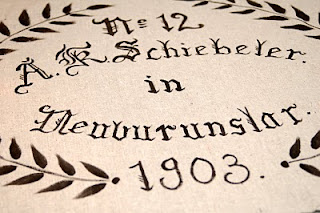 No 12
A. K. Schiebeler.
in
Neuburunslar.
1903.